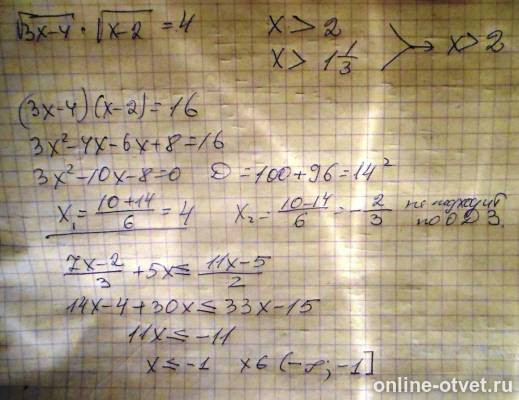 √3x-4 · √x-2 = 4
x > 2
x > 1 1/3
→ x > 2
(3x-4)(x-2)=16
3x²-4x-6x+8=16
3x²-10x-8=0 D=100+96=14²
x₁ = (10+14)/6 = 4 x₂ = (10-14)/6 = -2/3 не подходит
по ОДЗ.
(7x-2)/3 + 5x ≤ (11x-5)/2
14x-4+30x ≤ 33x-15
11x ≤ -11
x ≤ -1 x ϵ (-∞; -1]
online-otvet.ru